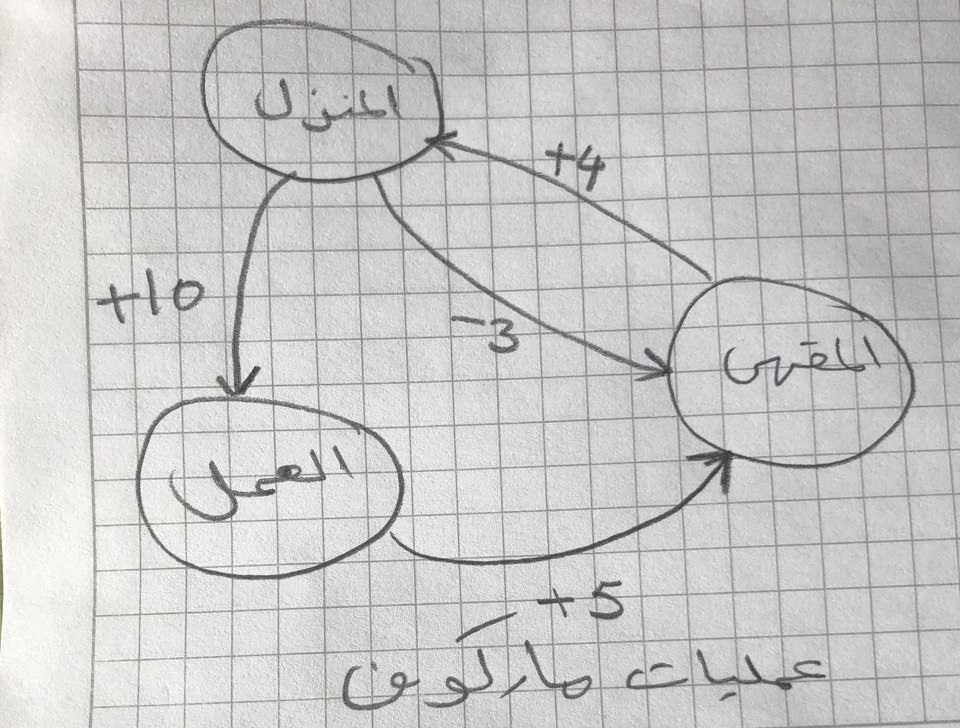 المنزل
+4
+10
-3
المقهى
العمل
+5
عمليات ماركوف